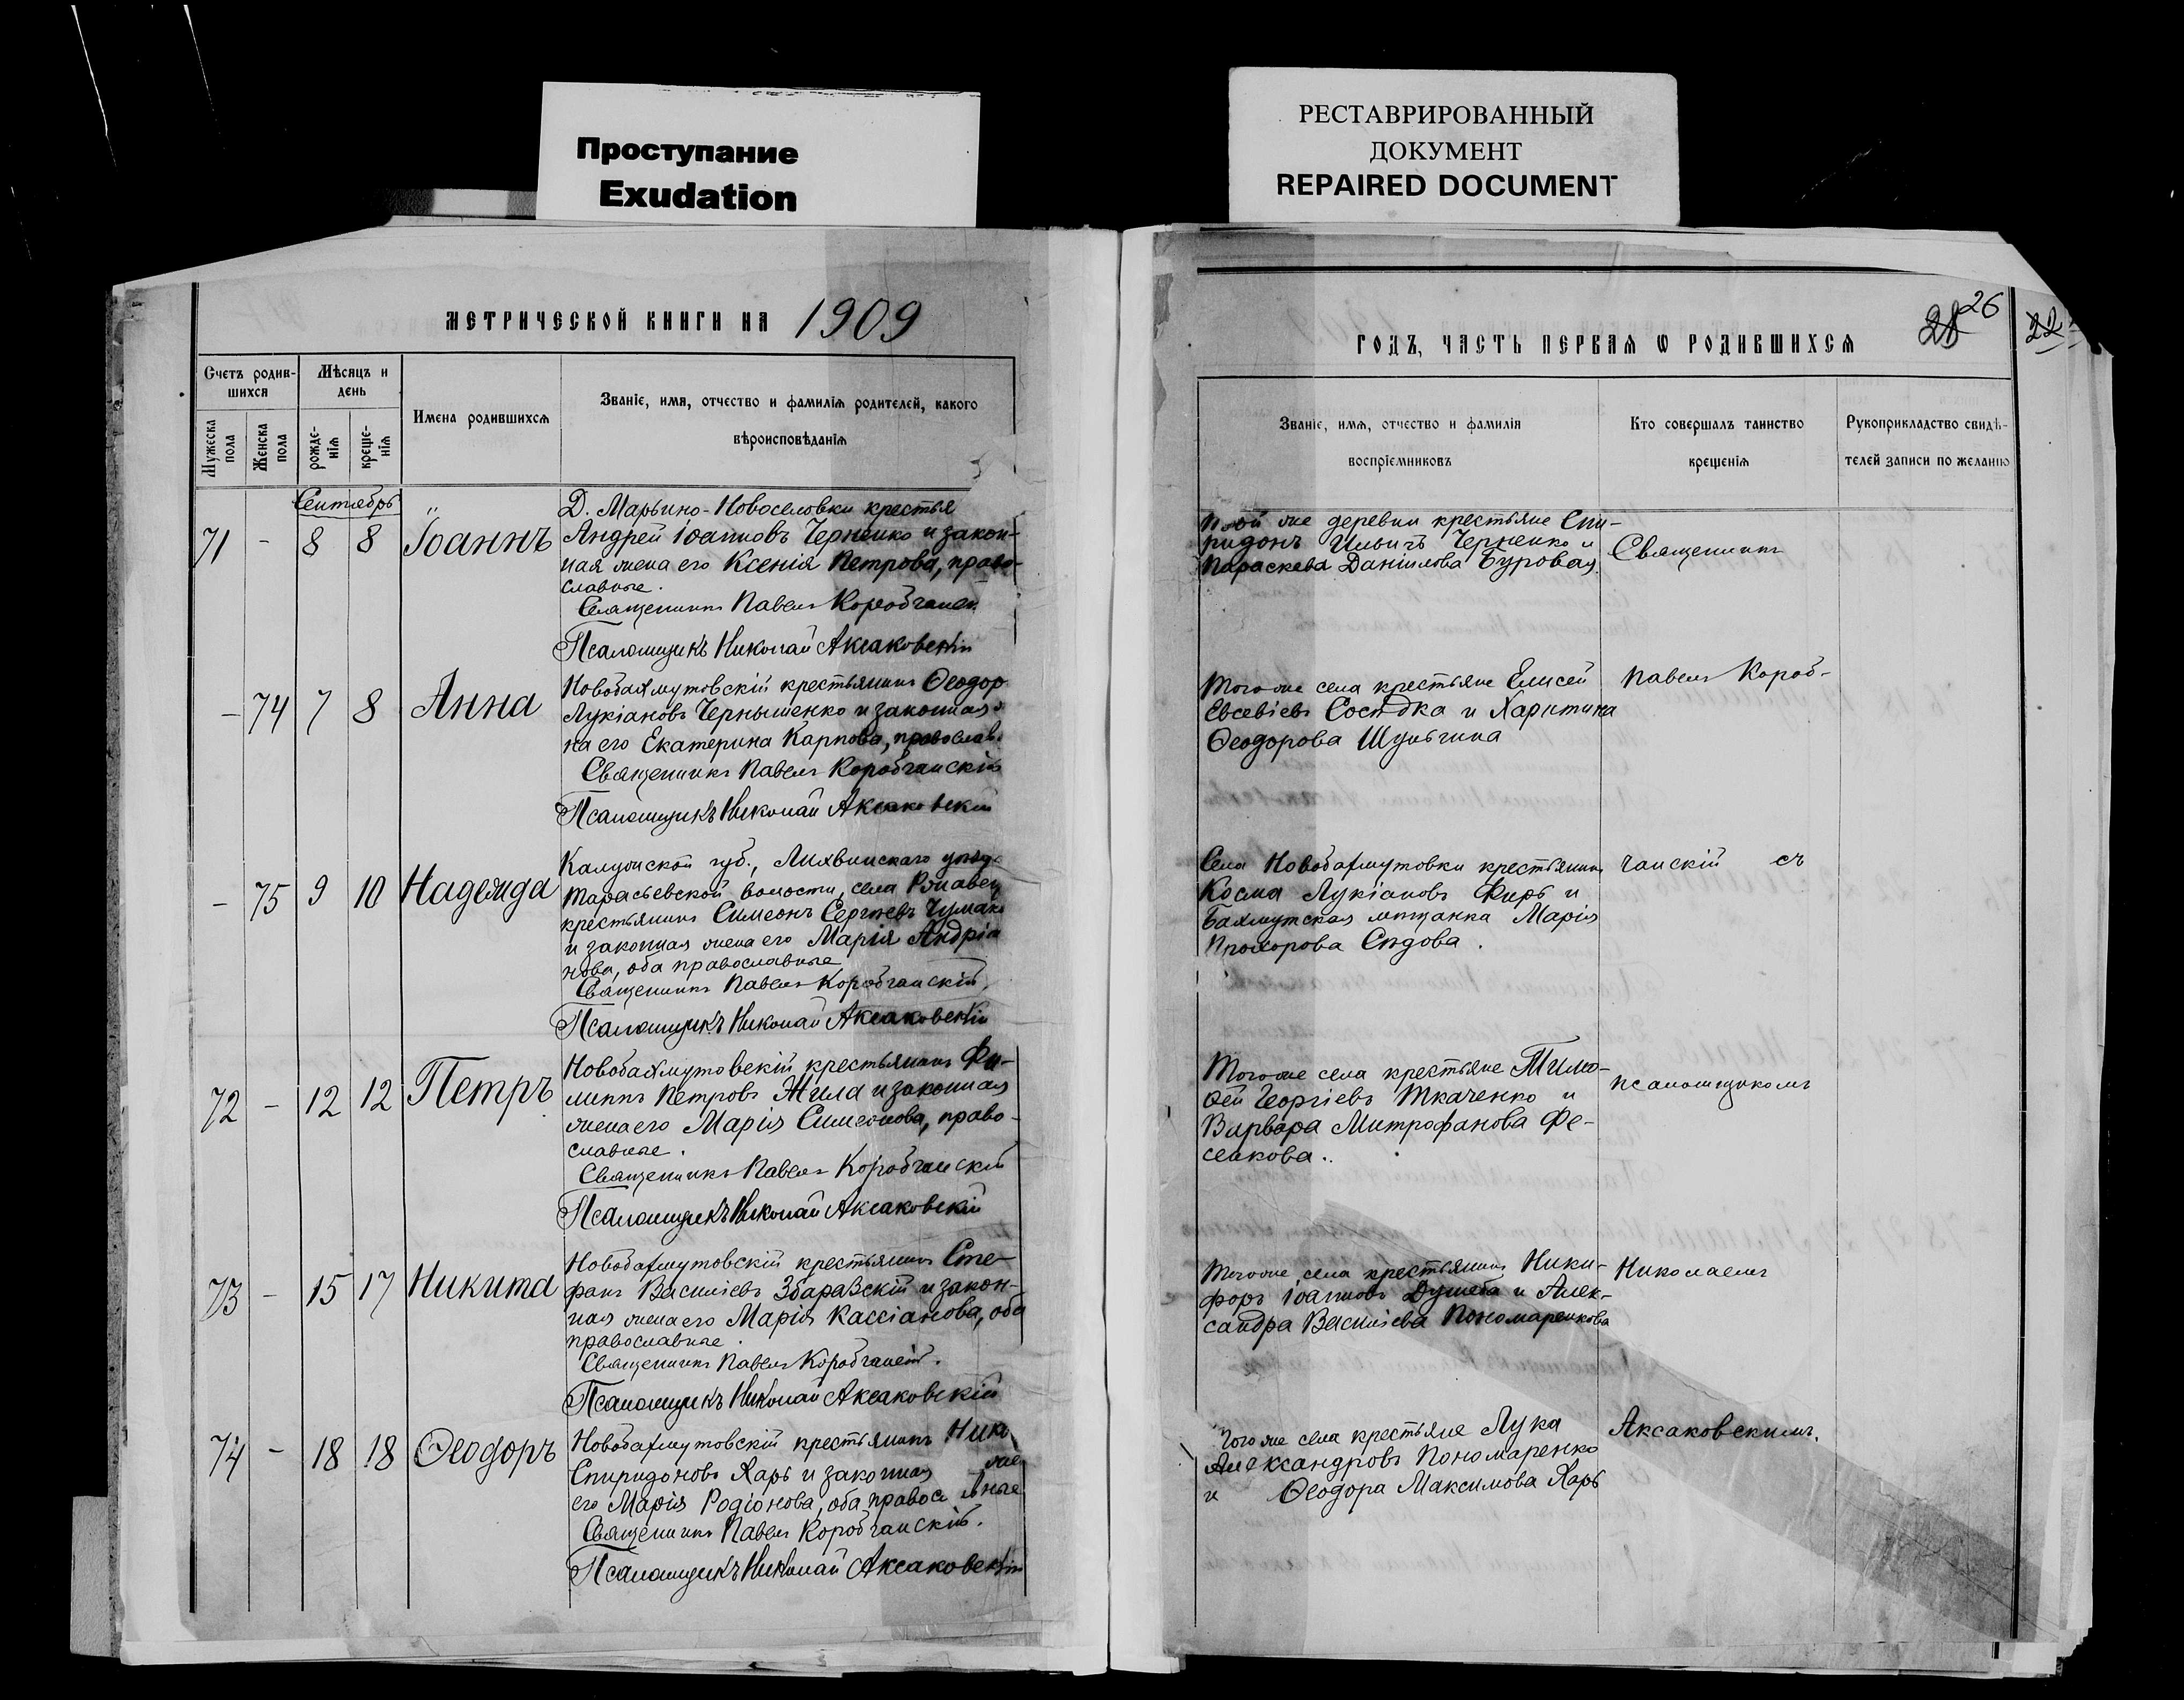 Проступание
Exudation
РЕСТАВРИРОВАННЫЙ
ДОКУМЕНТ
REPAIRED DOCUMENT
МЕТРИЧЕСКОЙ КНИГИ НА 1909
Счетъ родив-
шихся
Мѣсяцъ и
день
Имена родившихся
Званіе, имя, отчество и фамилія родителей, какого
вѣроисповѣданія
Мужеска
пола
Женска
пола
рожде-
нія
креще-
нія
Сентябрь
71 - 8 8 Іоаннъ
Д. Марьино-Новоселовки крестья
Андрей Іоанновъ Черненко и закон-
ная жена его Ксенія Петрова, право-
славные.
Священникъ Павелъ Коробчанск
Псаломщикъ Николай Аксаковскій
- 74 7 8 Анна
Новобахмутовскій крестьянинъ Ѳеодоръ
Лукіановъ Чернышенко и законная
на его Екатерина Карпова, православ.
Священникъ Павелъ Коробчанскій
Псаломщикъ Николай Аксаковскій
- 75 9 10 Надежда
Калужской губ., Лихвинскаго уѣзд.
Тарасьевской волости, села
крестьянинъ Симеонъ Сергѣевъ Чумако
и законная жена его Марія Андріа
нова, оба православные
Священникъ Павелъ Коробчанскій
Псаломщикъ Николай Аксаковскій
72 - 12 12 Петръ
Новобахмутовскій крестьянинъ Фи-
липпъ Петровъ Жила и законная
жена его Марія Симеонова, право-
славные.
Священникъ Павелъ Коробчанскій
Псаломщикъ Николай Аксаковскій
73 - 15 17 Никита
Новобахмутовскій крестьянинъ Сте-
фанъ Василіевъ Збаравскій и закон-
ная жена его Марія Кассіанова, оба
православные.
Священникъ Павелъ Коробчанскій.
Псаломщикъ Николай Аксаковскій
74 - 18 18 Ѳеодоръ
Новобахмутовскій крестьянинъ
Спиридоновъ Харь и законная же
его Марія Родіонова, оба правос вные
Священникъ Павелъ Коробчанскій.
Псаломщикъ Николай Аксаковскій
26
22
ГОДЪ, ЧАСТЬ ПЕРВАЯ Ѡ РОДИВШИХСЯ
Званіе, имя, отчество и фамилія
воспріемниковъ
Кто совершалъ таинство
крещенія
Рукоприкладство свидѣ-
телей записи по желанію
той же деревни крестьяне Спи-
ридонъ Ильичъ Черненко и
Параскева Даніилова Буровая.
Священникъ
Того же села крестьяне Елисей
Евсевіевъ Сосѣдка и Харитина
Ѳеодорова Шульгина
Павелъ Короб-
Села Новобахмутовки крестьянинъ
Косма Лукіановъ Фирь и
Бахмутская мѣщанка Марія
Прохорова Сѣдова.
чанскій съ
Того же села крестьяне Тимо-
ѳей Георгіевъ Ткаченко и
Варвара Митрофанова Фе-
сенкова.
псаломщикомъ
Того же села крестьянинъ Ники-
форъ Іоанновъ Душеба и Алек-
сандра Василіева Пономаренкова
Николаемъ
Того же села крестьяне Лука
Александровъ Пономаренко
и Ѳеодора Максимова Харь
Аксаковскимъ.